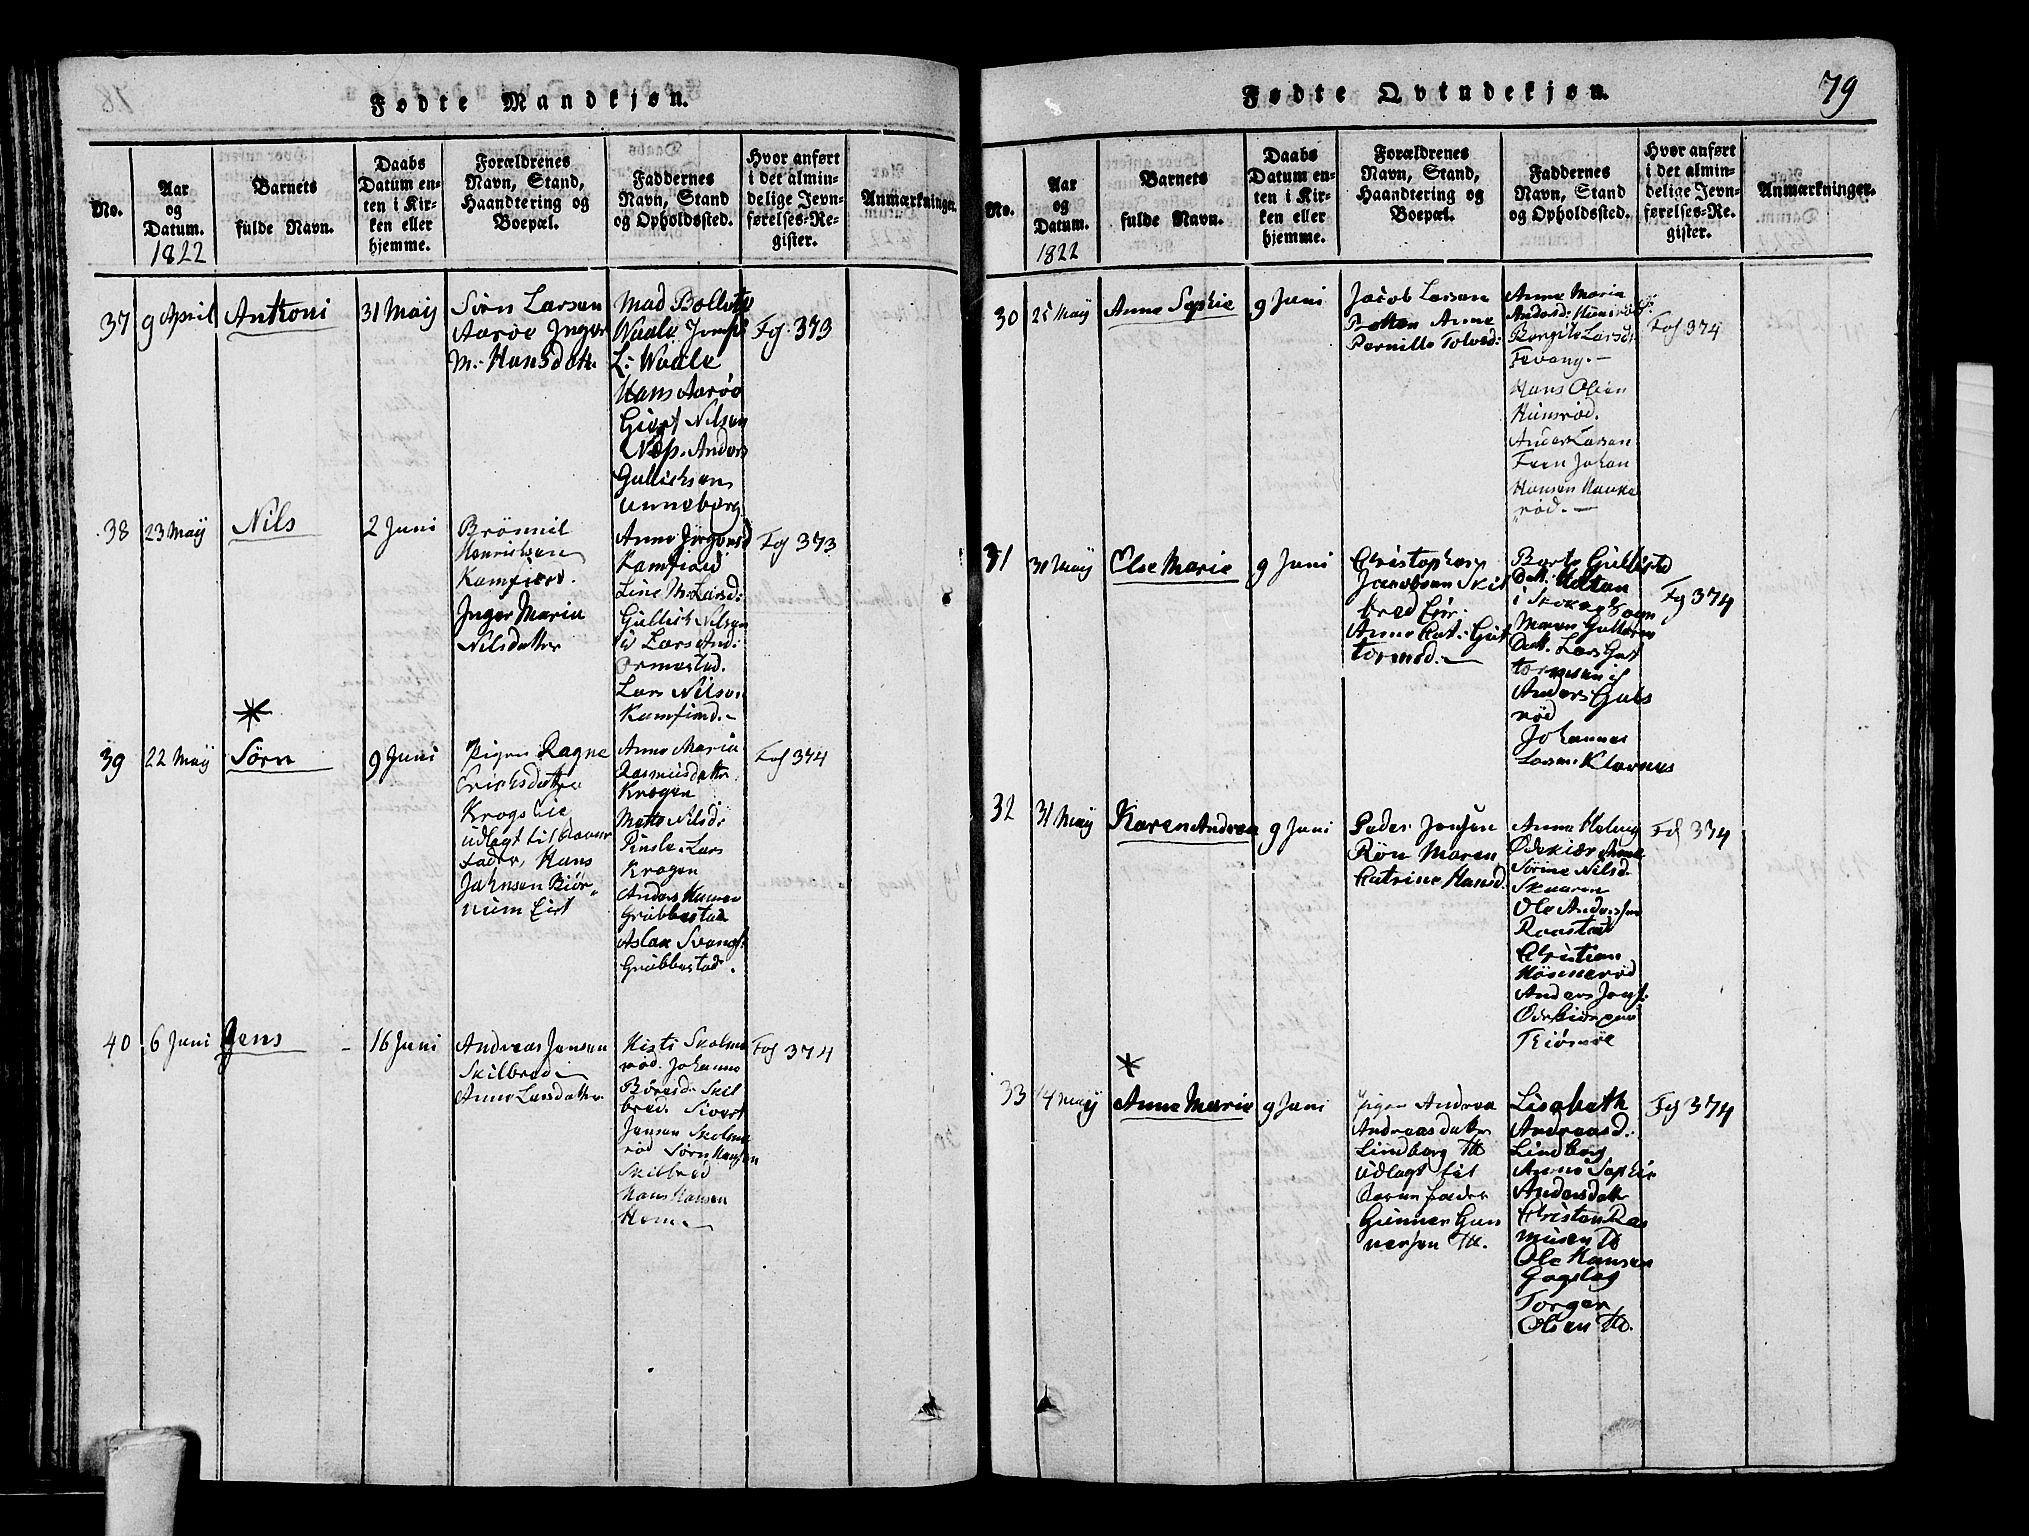 Fødte Mandkjøn.
No.
Aar
og
Datum.
1822
Barnets
fulde Navn.
Daabs
Datum en-
ten i Kir-
ken eller
hjemme.
Forældrenes
Navn, Stand,
Haandtering og
Boepæl.
Faddernes
Navn, Stand
og Opholdssted.
Hvor anført
i det almin-
delige Jevn-
førelses-Re-
gister.
Anmærkninger.
37
9 April
Antoni
31 Maÿ
Sørn Larsen
Aarøe Inger
M: Hansdatt.
Waale
L: Waale
Hans Aarøe
Nilsen
Anders
Gullichsen
Unneberg
Fol 373
38
23 Maÿ
Nils
2 Juni
Brønnil
Henrichsen
Kamfiord.
Inger Maria
Nilsdatter
Anne Jørgensd
Kamfiord
Line M: Larsd:
Gullich Nilsen
Lars And:
Ormestad.
Lars Nilsen
Kamfiord.
Fol 373
39
22 Maÿ
Sørn
9 Juni
Pigen Ragne
Erichsdatter
Krogslie
udlagt til Barne
fader, Hans
Johnsen Biør-
num
Anne Maria
Rasmusdatter
Krogen
Mette Nilsd:
Lars
Krogen
Anders Hansen
Grubbestad
Aslak
Grubbestad.
Fol 374
40
6 Juni
Jens
16 Juni
Andreas Jensen
Skilbred
Anne Larsdatter
Kisti Skolme
rød. Johanne
Skil
bred. Sivert
Jensen Skolme
rød Sørn Hansen
Skilbred
Hans Hansen
Hem
Fol 374
Fødte Qvindekjøn.
79
No.
Aar
og
Datum.
1822
Barnets
fulde Navn.
Daabs
Datum en-
ten i Kir-
ken eller
hjemme.
Forældrenes
Navn, Stand,
Haandtering og
Boepæl.
Faddernes
Navn, Stand
og Opholdssted.
Hvor anført
i det almin-
delige Jevn-
førelses-Re-
gister.
Anmærkninger.
30
25 Maÿ
Anne Sophie
9 Juni
Jacob Larsen
Anne
Pernille Tolvsd:
Anne Maria
Andersd: Hunsrød
Larsd:
Fevang.
Hans Olsen
Hunsrød.
Anders Larsen
Fren Johan
Hansen Hauke
rød.
Fol 374
31
30 Maÿ
Else Marie
9 Juni
Christopher
Jacobsen Skil
bred
Anne Cat: Gut
tormsd.
Datt.
i
Maren
Datt. Lars Gut
tormsen
Anders
rød
Johannes
Larsen Klavnes
Fol 374
32
31 Maÿ
Karen Andrea
9 Juni
Peder Jensen
Røn Maren
Catrine Hansd.
Anne
Ødekiær Anne
Sørine Nilsd.
Skaaren
Ole Andersen
Raastad
Christian
Hønnerød
Anders
Ødekiær
Tiømøe
Fol 374
33
14 Maÿ
Anne Marie
9 Juni
Pigen Andrea
Andreasdatter
Lindborg
udlagt til
Barnefader
Gunner Gun
nersen
Lisabeth
Andreasd:
Lindborg
Anne Sophie
Andersdatter
Christen Ras
musen
Ole Hansen
Gogslag
Torger
Olsen
Fol 374